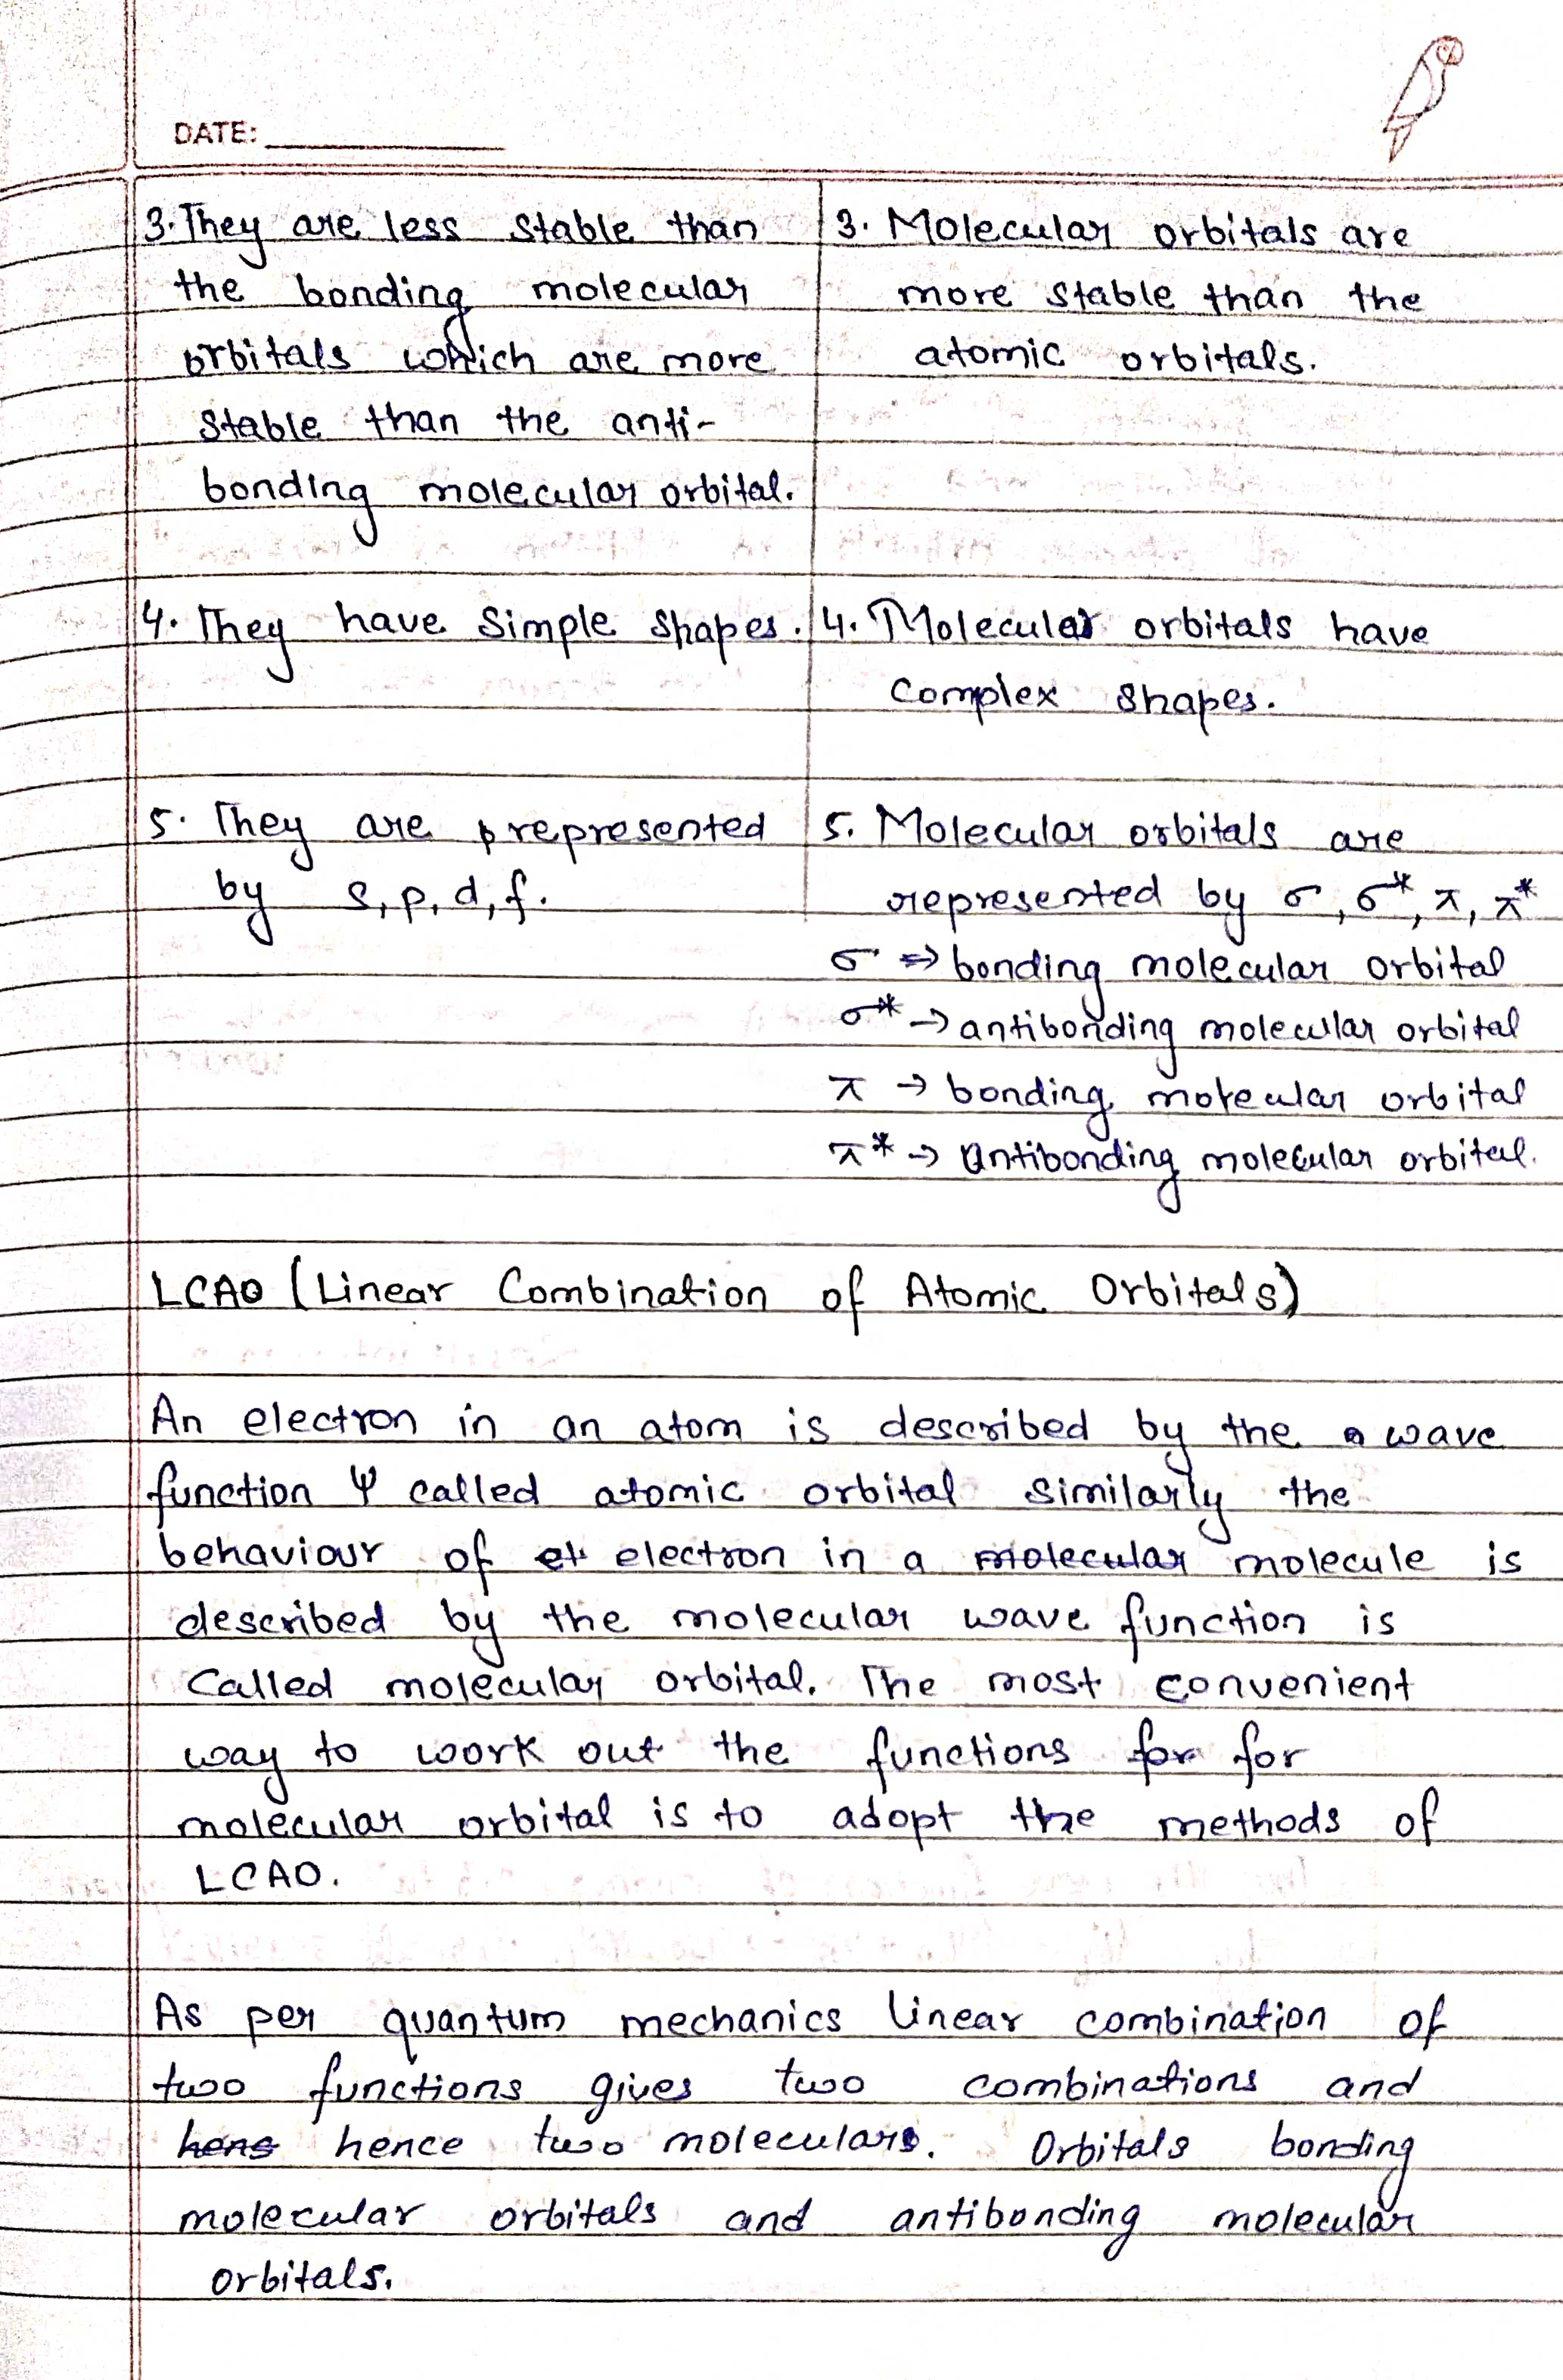 DATE:
3. They are less stable than
the bonding molecular
orbitals which are more
stable than the anti-
bonding molecular orbital.
3. Molecular orbitals are
more stable than the
atomic orbitals.
4. They have simple shapes.
4. Molecular orbitals have
complex shapes.
5. They are represented
by s, p, d, f.
5. Molecular orbitals are
represented by σ, σ*, π, π*
σ ⇒ bonding molecular orbital
σ* → antibonding molecular orbital
π → bonding molecular orbital
π* → Antibonding molecular orbital.
LCAO (Linear Combination of Atomic Orbitals)
An electron in an atom is described by the wave
function Ψ called atomic orbital similarly the
behaviour of electron in a molecular molecule is
described by the molecular wave function is
called molecular orbital. The most convenient
way to work out the functions for for
molecular orbital is to adopt the methods of
LCAO.
As per quantum mechanics linear combination of
two functions gives two combinations and
hens hence two moleculars. Orbitals bonding
molecular orbitals and antibonding molecular
orbitals.